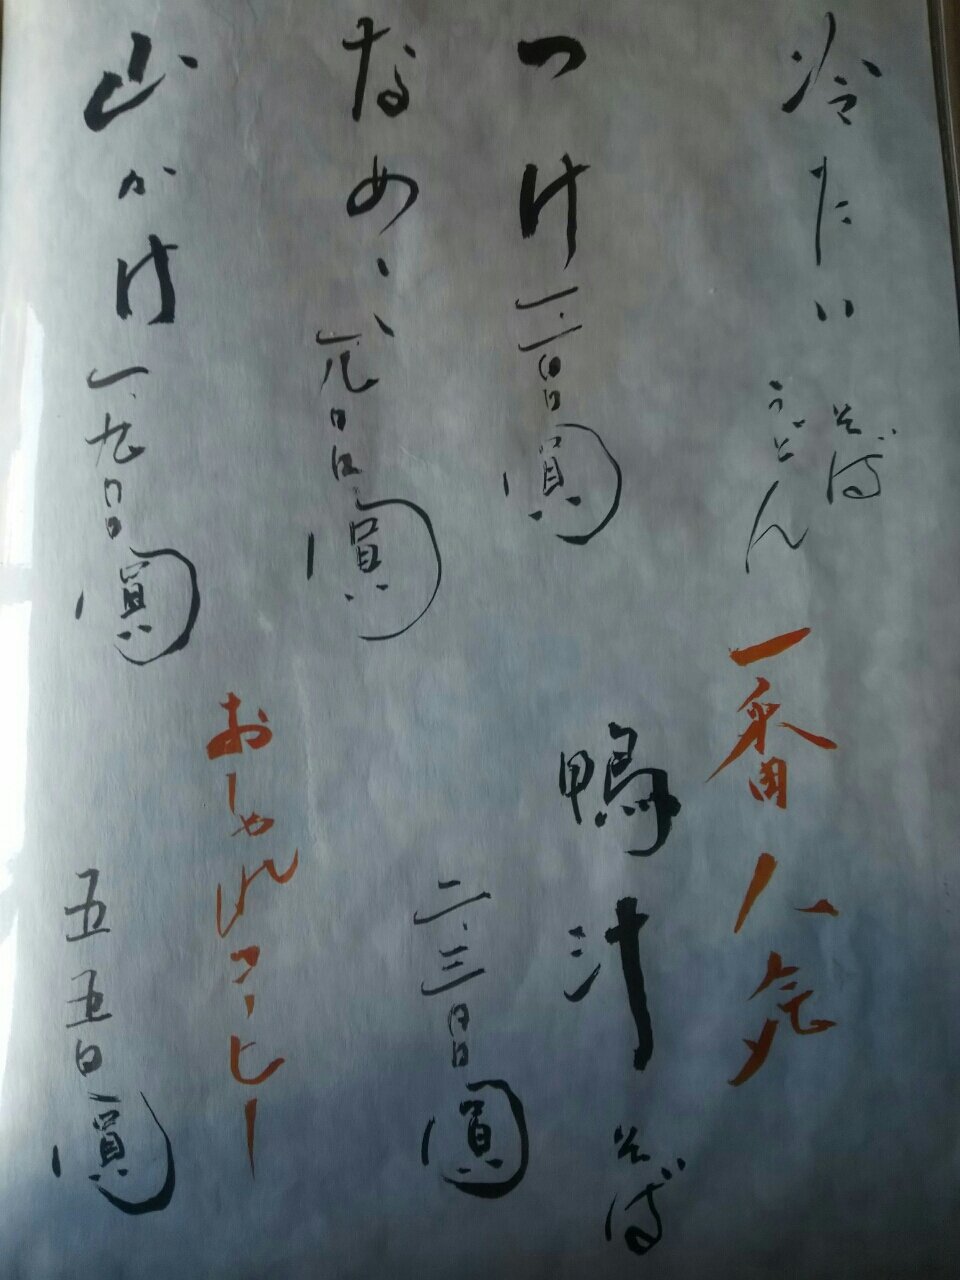 冷たい そば うどん
つけ
なめこ 一八〇〇圓
山かけ 一.九〇〇圓
一番人気
鴨汁そば
二.三〇〇圓
おしゃれコーヒー
五五〇圓